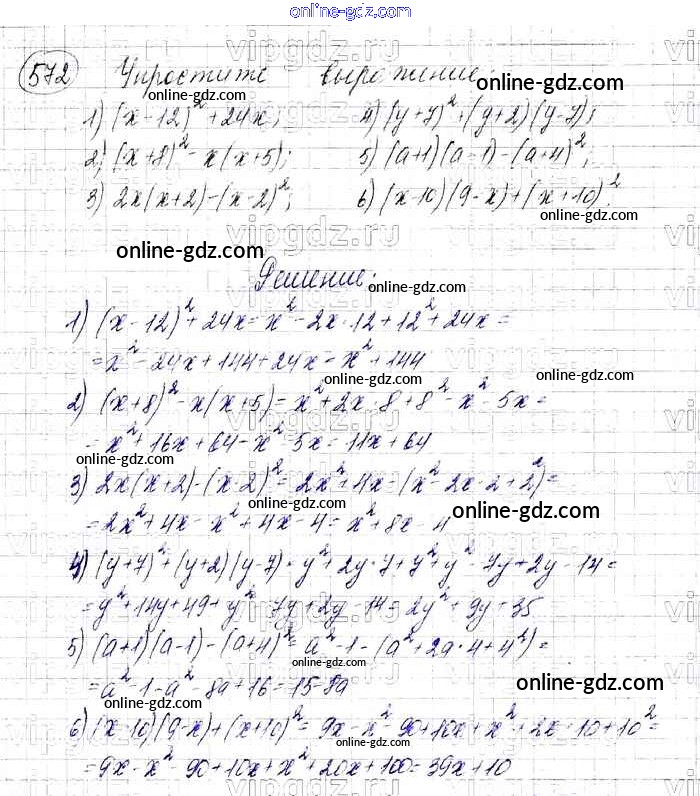 online-gdz.com
572 Упростите выражение:
online-gdz.com
1) (x-12)² + 24x; 4) (y+7)² + (y+2)(y-7);
2) (x+8)² - x(x+5); 5) (a+1)(a-1) - (a+4)²;
3) 2x(x+2) - (x-2)²; 6) (x-10)(9-x) + (x+10)².
online-gdz.com
online-gdz.com
Решение:
online-gdz.com
1) (x-12)² + 24x = x² - 2x·12 + 12² + 24x =
= x² - 24x + 144 + 24x = x² + 144
online-gdz.com
online-gdz.com
2) (x+8)² - x(x+5) = x² + 2x·8 + 8² - x² - 5x =
= x² + 16x + 64 - x² - 5x = 11x + 64
online-gdz.com
3) 2x(x+2) - (x-2)² = 2x² + 4x - (x² - 2x·2 + 2²) =
= 2x² + 4x - x² + 4x - 4 = x² + 8x - 4
online-gdz.com
4) (y+7)² + (y+2)(y-7) = y² + 2y·7 + 7² + y² - 7y + 2y - 14 =
= y² + 14y + 49 + y² - 7y + 2y - 14 = 2y² + 9y + 35
5) (a+1)(a-1) - (a+4)² = a² - 1 - (a² + 2a·4 + 4²) =
online-gdz.com
= a² - 1 - a² - 8a + 16 = 15 - 8a
online-gdz.com
online-gdz.com
6) (x-10)(9-x) + (x+10)² = 9x - x² - 90 + 10x + x² + 2x·10 + 10² =
online-gdz.com
= 9x - x² - 90 + 10x + x² + 20x + 100 = 39x + 10
online-gdz.com